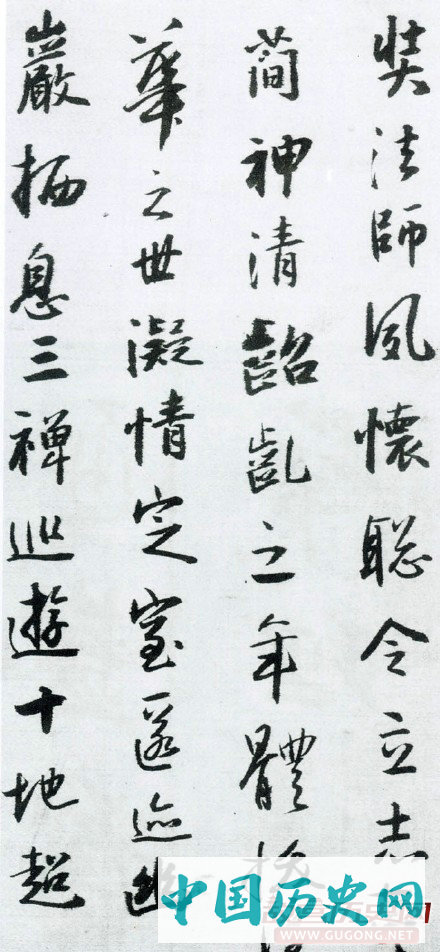 奘法師夙懷聰令立志
簡神清齠齔之年體
華之世凝情定室匿迹幽
巖栖息三禪巡遊十地超
中国历史网
WWW.GUGONG.NET